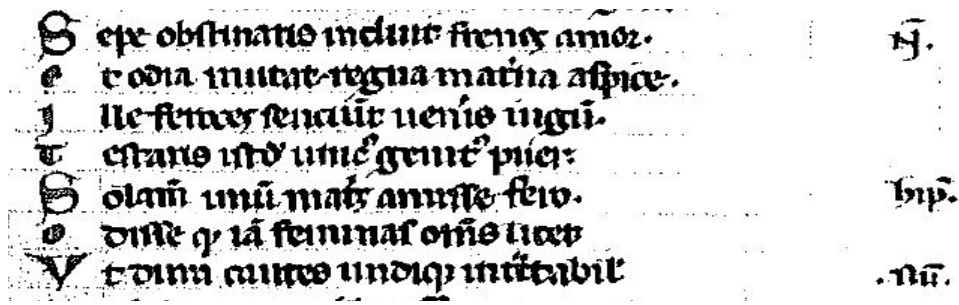 Sepe obstinatis induit frenos amor. N̄.
et odia mutat regna mat͛na aspice.
Ille feroces senciūt uen͛is iugū.
testaris istd̛ unicꝰ genitꝰ puer
Solam̄ unū mat͛s amisse fero. hip̄.
odisse ꝙ iā feminas om̄s licet
Vt dura cautes undiqꝫ int͛ctabil̛ . nū.